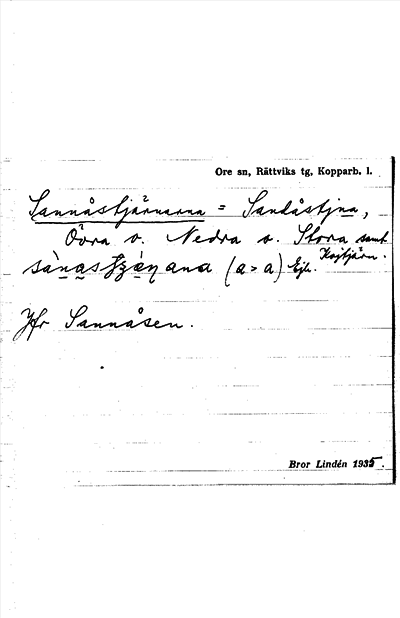 Ore sn, Rättviks tg, Kopparb. l.
Sannåstjärnarna = Sandåstjna,
Övra o. Nedra o. Stora samt
Kojtjärn.
(a > a) Ejk.
Jfr Sannåsen.
Bror Lindén 1935.